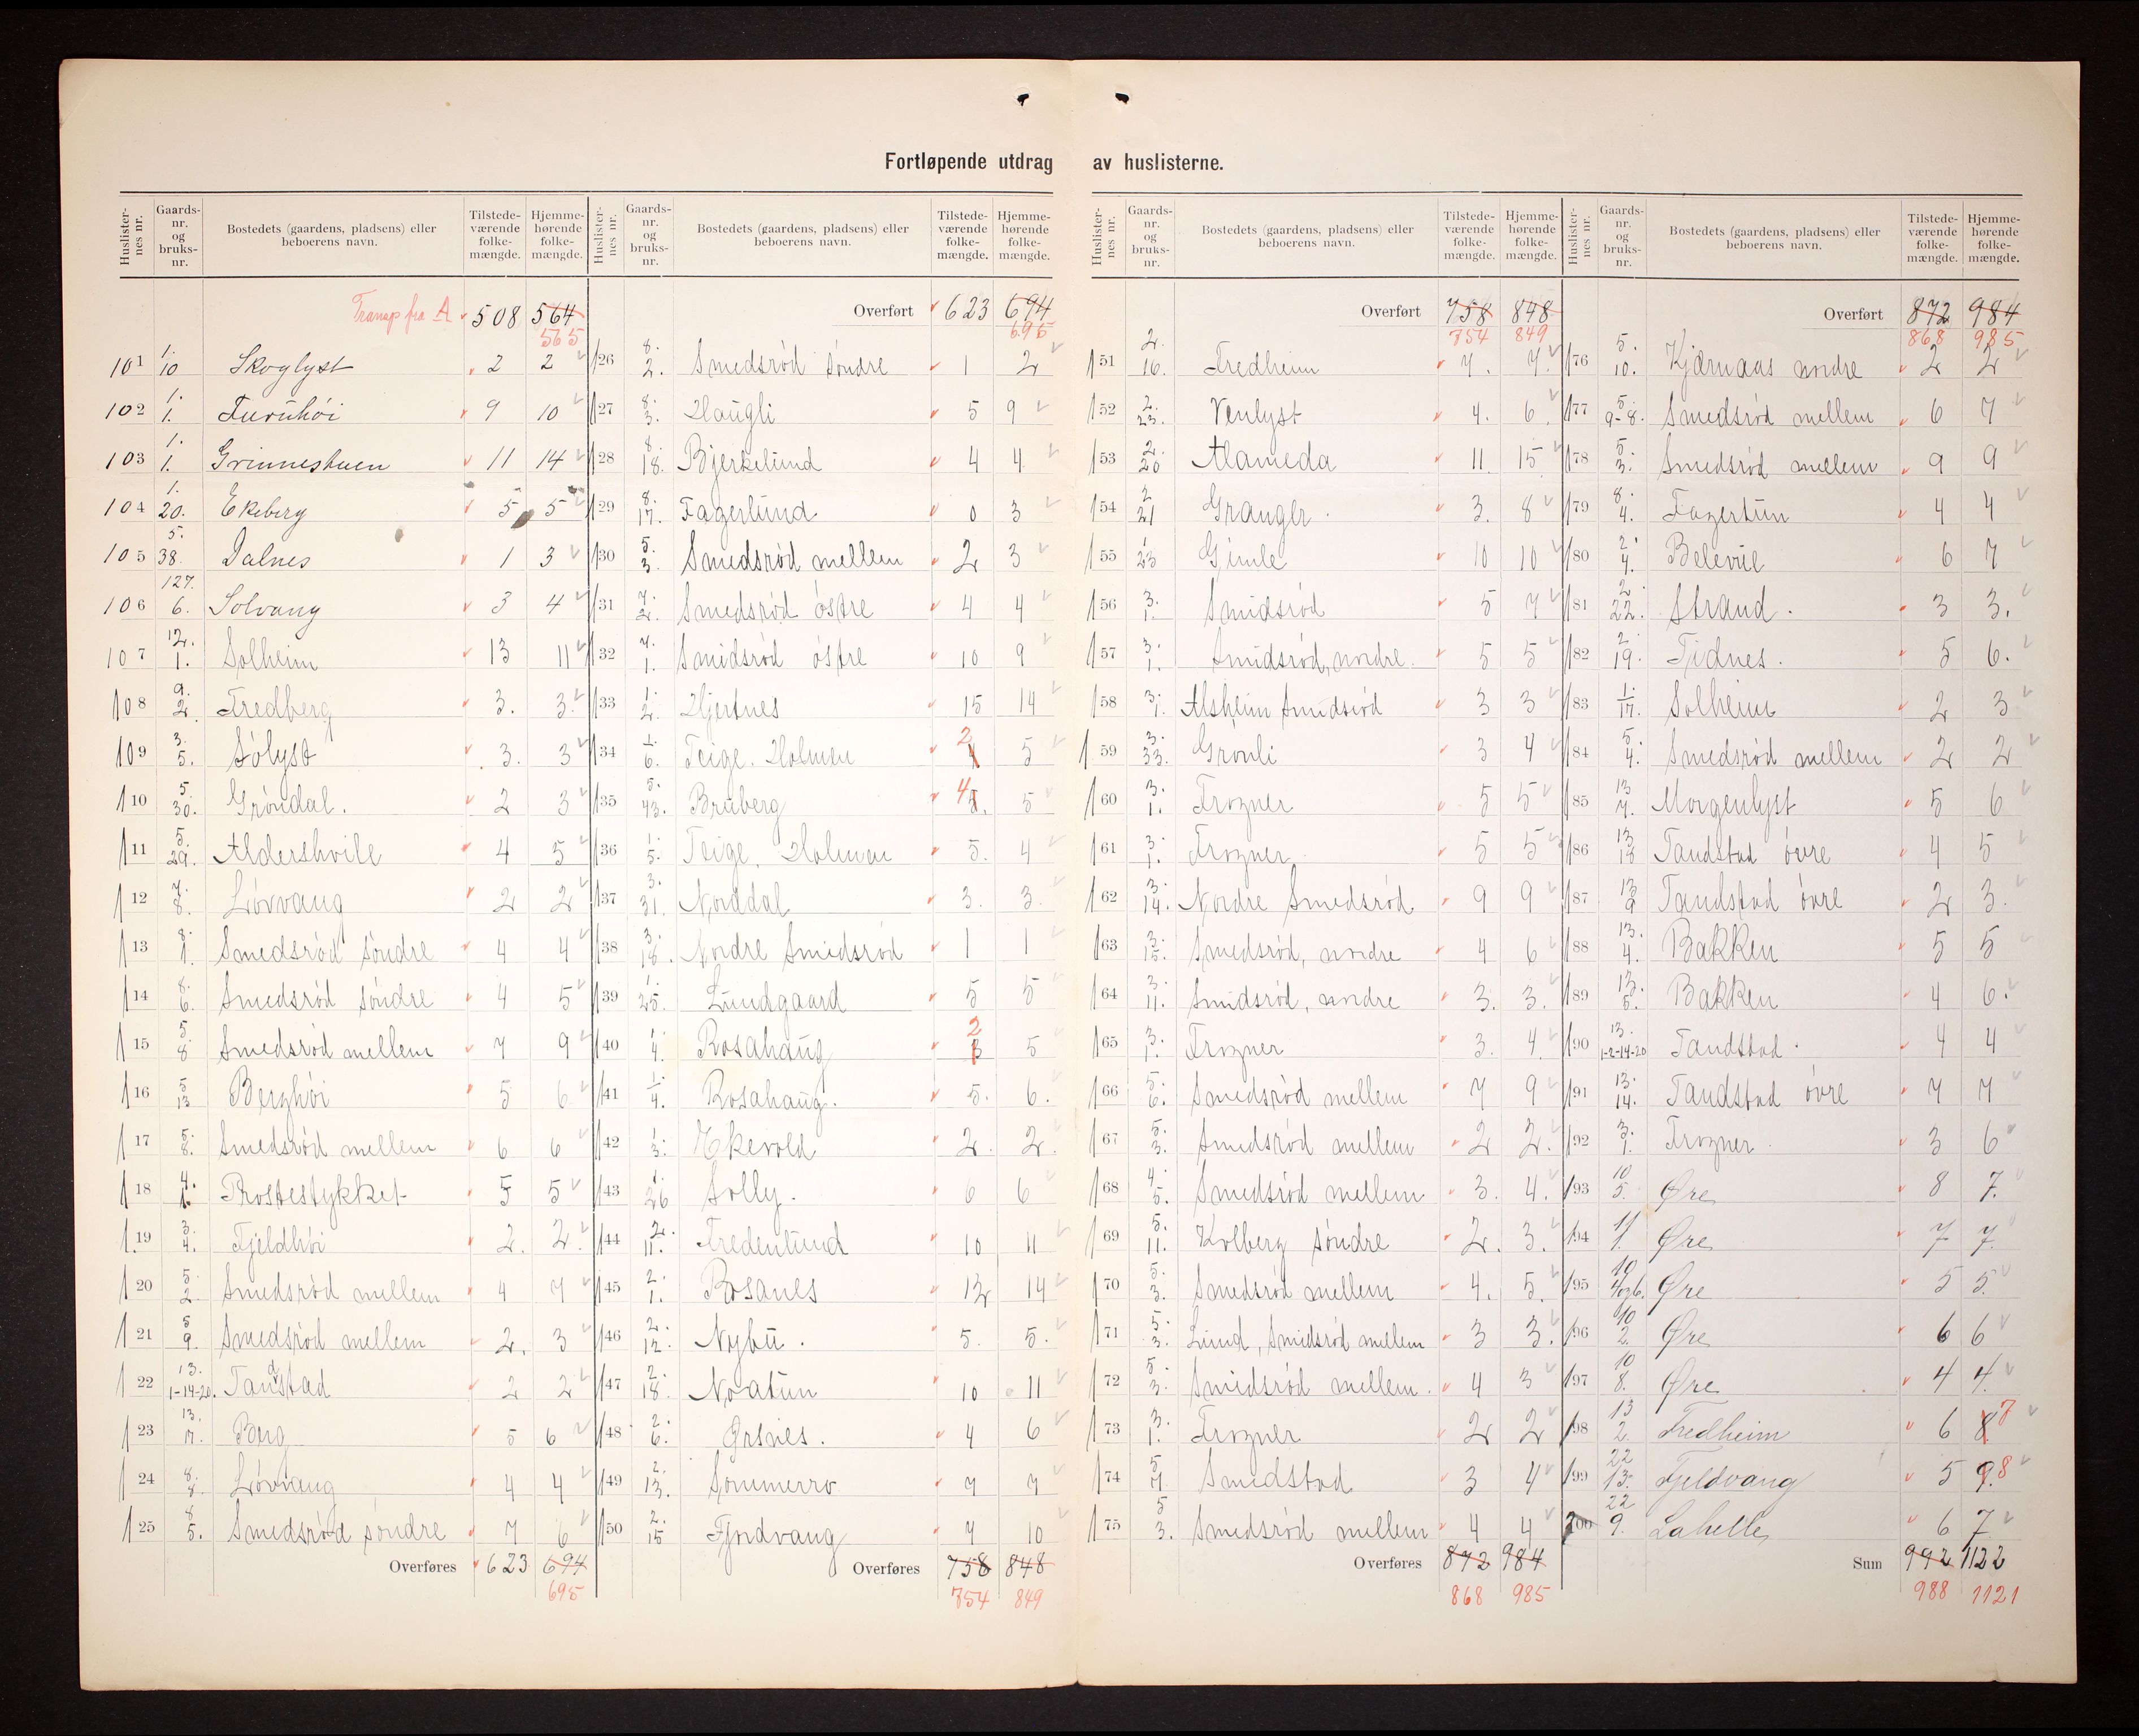 Fortløpende utdrag av huslisterne.
Huslisternes nr. Gaardsnr. og bruksnr. Bostedets (gaardens, pladsens) eller beboerens navn. Tilstedeværende folkemængde. Hjemmehørende folkemængde.
Transp fra A 508 564 565
101 1. 10 Skoglyst 2 2
102 1. 1. Furuhøi 9 10
103 1. 1. Grinneshuen 11 14
104 1. 20. Ekeberg 5 5
105 5. 38. Dalnes 1 3
106 127. 6. Solvang 3 4
107 12. 1. Solheim 13 11
108 9. 2. Fredberg 3. 3.
109 3. 5. Sølyst 3. 3
110 5. 30. Grøndal. 2 3
111 5. 29. Aldershvile 4 5
112 7. 8. Løvvang 2 2
113 8. 1. Smedsrød søndre 4 4
114 8. 6. Smedsrød søndre 4 5
115 5. 8 Smedsrød mellem 7 9
116 5 13 Berghøi 5 6
117 5. 8. Smedsrød mellem 6 6
118 4. 1. Prostestykket 5 5
119 3. 4. Fjeldhøi 2. 2.
120 5. 2. Smedsrød mellem 4 7
121 5 9. Smedsrød mellem 2. 3
122 13. 1-14-20. Tandstad 2 2
123 13. 17. Berg 5 6
124 8. 8. Løvvang 4 4
125 8 5. Smedsrød søndre 7 6
Overføres 623 694 695
Huslisternes nr. Gaardsnr. og bruksnr. Bostedets (gaardens, pladsens) eller beboerens navn. Tilstedeværende folkemængde. Hjemmehørende folkemængde.
Overført 623 694 695
126 8. 2. Smedsrød søndre 1 2
127 8. 3. Haugli 5 9
128 8. 18. Bjerkelund 4 4
129 8. 17. Fagerlund 0 3
130 5. 3. Smedsrød mellem 2 3
131 7. 2. Smedsrød østre 4 4
132 7. 1. Smidsrød østre 10 9
133 1. 2. Hjertnes 15 14
134 1. 6. Teige. Holmen 2 5
135 5. 43. Bruberg 4 5
136 1. 5. Teige, Holmen 5. 4
137 3. 31. Norddal 3. 3.
138 3. 18. Nordre Smidsrød 1 1
139 1. 25. Lundgaard 5 5
140 1 4. Rosahaug 2 3 5
141 1. 4. Rosahaug. 5. 6.
142 1 3. Ekevold 2. 2.
143 1. 26 Solly. 6 6
144 2. 11. Fredenlund 10 11
145 2. 1. Rosanes 12 14
146 2. 12. Nybu. 5. 5.
147 2. 18. Noatun 10 11
148 2. 6. Ørsnes. 4 6
149 2. 13. Sommerro 7 7
150 2. 15 Fjordvang 7 10
Overføres 758 848 754 849
Huslisternes nr. Gaardsnr. og bruksnr. Bostedets (gaardens, pladsens) eller beboerens navn. Tilstedeværende folkemængde. Hjemmehørende folkemængde.
Overført 758 848 754 849
151 2. 16. Fredheim 7. 7.
152 2. 23. Venlyst 4. 6
153 2. 20 Alameda 11. 15
154 2 21 Granger. 3. 8
155 1 23 Gimle 10 10
156 3. 1. Smidsrød 5 7
157 3. 1. Smidsrød, nordre. 5 5
158 3. 1. Alsheim Smidsrød 3 3
159 3. 33. Grønli 3 4
160 3. 1. Trogner 5 5
161 3. 1. Trogner 5 5
162 3. 14. Nordre Smedsrød 9 9
163 3. 15. Smedsrød, nordre 4 6
164 3. 11. Smidsrød, nordre 3. 3.
165 3. 1. Trogner 3. 4
166 5. 6. Smedsrød mellem 7 9
167 5. 3. Smedsrød mellem 2 2.
168 4. 5. Smedsrød mellem 3. 4.
169 5. 11. Kolberg søndre 2. 3.
170 5. 3. Smedsrød mellem 4. 5.
171 5. 3. Lund, Smidsrød mellem 3 3.
172 5. 3. Smidsrød mellem. 4 3
173 3. 1. Trogner 2 2
174 5 7 Smidstad 3 4
175 5 3. Smedsrød mellem 4 4
Overføres 872 984 868 985
Huslisternes nr. Gaardsnr. og bruksnr. Bostedets (gaardens, pladsens) eller beboerens navn. Tilstedeværende folkemængde. Hjemmehørende folkemængde.
Overført 872 984 868 985
176 5. 10. Kjærnaas nordre 2 2
177 5 9-8. Smedsrød mellem 6 7
178 5 3. Smedsrød mellem 9 9
179 8. 4. Fagertun 4 4
180 2. 4. Belevue 6 7
181 2. 22. Strand. 3 3.
182 2. 19. Tidnes. 5 6.
183 1. 17. Solheim 2 3
184 5 4. Smedsrød mellem 2 2
185 13 7. Morgenlyst 5 6
186 13 18 Tandstad øvre 4 5
187 13 9 Tandstad øvre 2 3.
188 13. 4. Bakken 5 5
189 13. 5. Bakken 4 6.
190 13. 1-2-14-20 Tandstad. 4 4
191 13. 14. Tandstad øvre 7 7
192 3. 1. Trogner. 3 6
193 10 5. Øre 8 7.
194 11 1. Øre 7 7.
195 10 4og6. Øre 5 5.
196 10 2. Øre 6 6
197 10 8. Øre 4 4.
198 13 2 Fredheim 6 8 7
199 22 13. Fjeldvang 5 9. 8
200 22 9. Lahelle 6 7
Sum 992 1122 988 1121